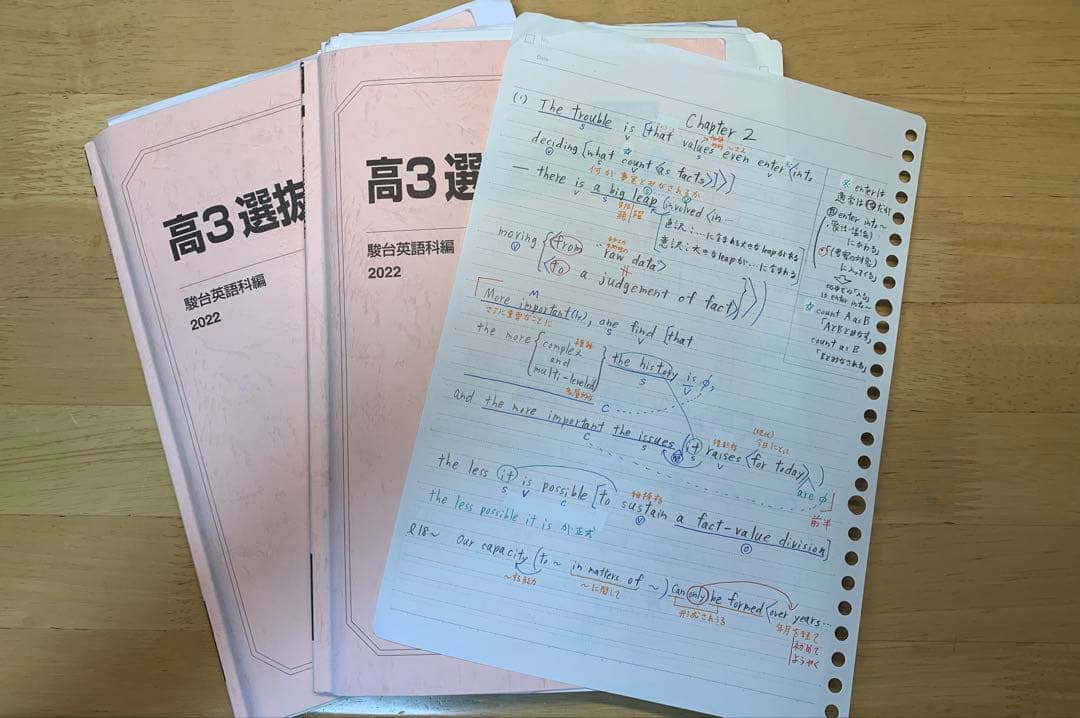 高3選抜
駿台英語科編
2022
高3選
駿台英語科編
2022
Date
Chapter 2
(1) The trouble is [that values even enter <into
S V S V
deciding [what count <as facts>]>]
何が事実とみなされるか
— there is a big leap (involved <in…
V S
飛躍
意訳:…に含まれる大きなleapがある
意訳:大きなleapが…に含まれる
moving { <from raw data>
<to a judgement of fact> }>)
More important(ly), one find [that
M S V
さらに重要なことに
the more { complex
and
multi-leveled } the history is φ,
複雑
多層的な
S V
C
and the more important the issues (it raises <for today>)
C S S V
今日にとって
are φ
前半
the less it is possible [to sustain a fact-value division]
S V C
維持する
the less possible it is が正式
l18~ Our capacity (to ~ in matters of ~) can only be formed <over years…
~する能力
~に関して
形成されうる
年月を経て
初めて
ようやく
※ enterは
通常は他だが
自enter into~
count A as B
「AをBとみなす」
count as B
「Bとみなされる」